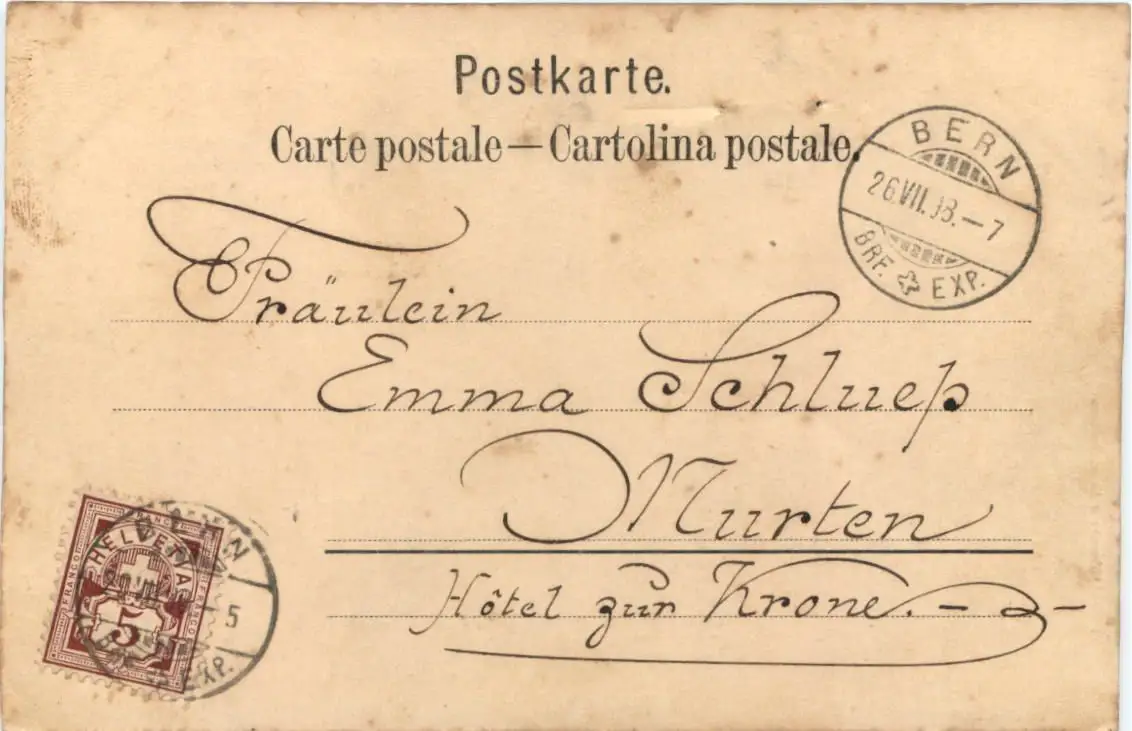 Postkarte.
Carte postale—Cartolina postale.
BERN
26.VII.98.—7
BRF. EXP.
Fräulein
Emma Schluep
Murten
Hôtel zur Krone.
FRANCO
HELVETIA
FRANCO
FRANCO
5
BERN
5
EXP.